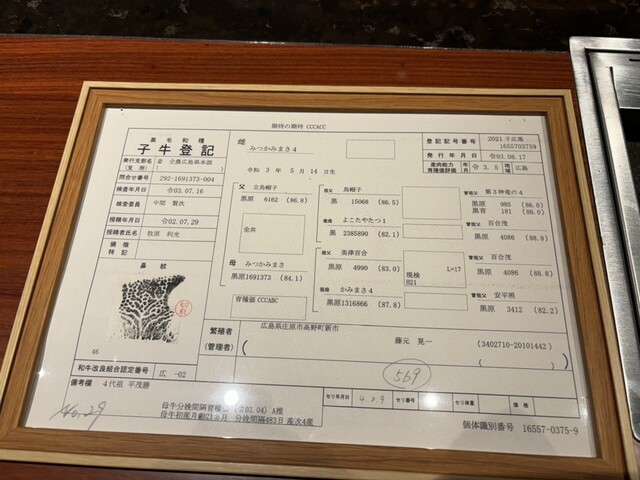 期待の期待 CCCACC
黒毛和種
子牛登記
発行支部名(支所) 全農広島県本部
問合せ番号 292-1691373-004
検査年月日 令03.07.16
検査委員 中間 賢次
授精年月日 令02.07.29
授精者氏名 牧原 利光
損徴特記
鼻紋
46
和牛改良組合認定番号 広 -02
備考欄 4代祖 平茂勝
No.29
雌
みつかみまさ4
令和 3年 5月14日生
登記記号番号 2021子広黒 1655703759
発行年月日 令03.08.17
産肉能力育種価評価 年月 令 3.5 地域 広島
父 立烏帽子
黒原 6162 (86.8)
全共
母 みつかみまさ
黒原1691373 (84.1)
育種価 CCCABC
祖父 烏帽子
黒 15068 (86.5)
祖母 よこたやたつ1
黒 2385890 (82.1)
祖父 美津百合
黒原 4990 (83.0)
現検 H21
L=17
祖母 かみまさ4
黒原1316866 (87.8)
曾祖父 第3神竜の4
黒原 985 (86.0)
黒育 181 (86.0)
曾祖父 百合茂
黒原 4086 (88.8)
曾祖父 百合茂
黒原 4086 (88.8)
曾祖父 安平照
黒原 3412 (82.2)
繁殖者 広島県庄原市高野町新市
(管理者) 藤元 晃一 (3402710-20101442)
569
セリ年月日 4.3.9 セリ番号 セリ体重 価格
母牛分娩間隔育種価 (令03.04) A推
母牛初産月齢21ヵ月 分娩間隔483日 産次4産
個体識別番号 16557-0375-9